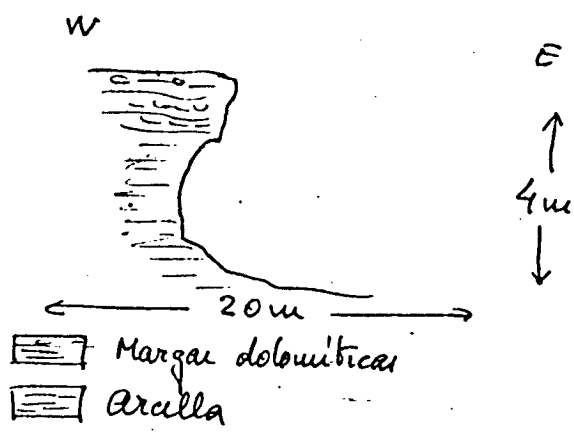 W
E
4m
20m
Margas dolomíticas
Arcilla